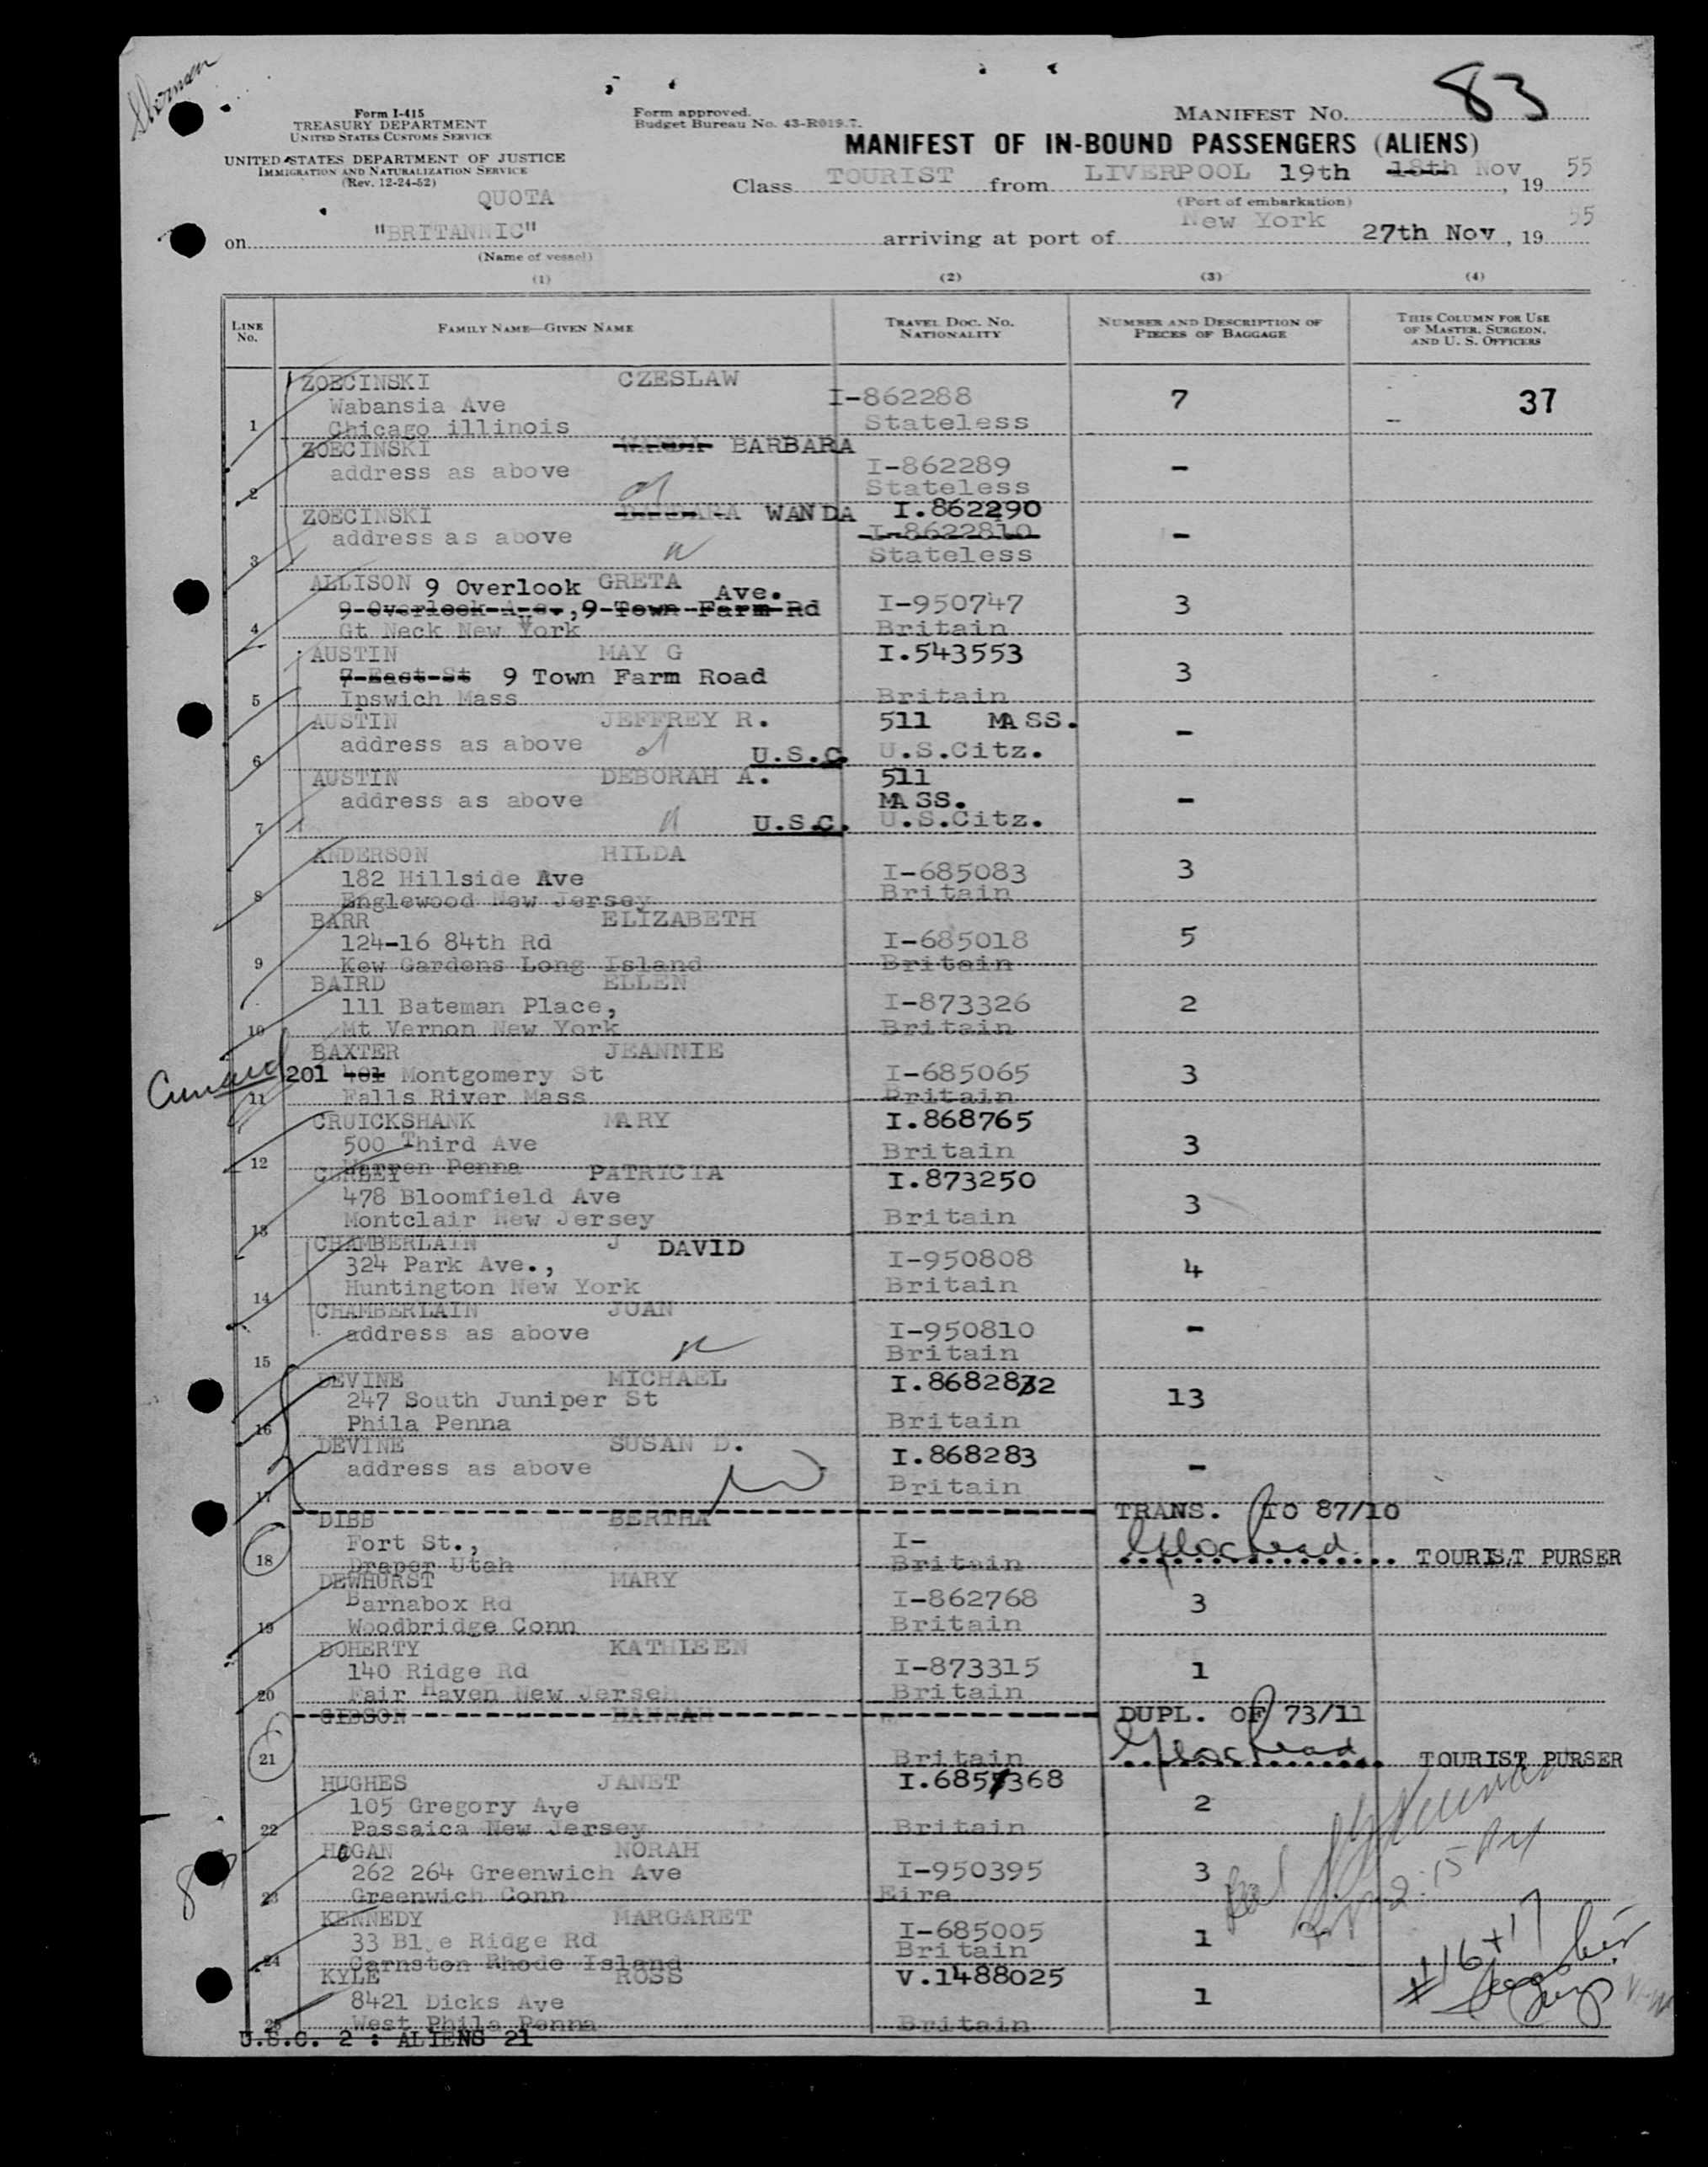 Sherman
83
Form I-415
TREASURY DEPARTMENT
UNITED STATES CUSTOMS SERVICE
UNITED STATES DEPARTMENT OF JUSTICE
IMMIGRATION AND NATURALIZATION SERVICE
(Rev. 12-24-52)
Form approved.
Budget Bureau No. 43-R019.7.
MANIFEST No.
MANIFEST OF IN-BOUND PASSENGERS (ALIENS)
QUOTA
Class TOURIST from LIVERPOOL 19th 18th Nov, 19 55
(Port of embarkation)
on "BRITANNIC" arriving at port of New York 27th Nov, 19 55
(Name of vessel)
(1) (2) (3) (4)
LINE No. FAMILY NAME—GIVEN NAME TRAVEL DOC. NO. NATIONALITY NUMBER AND DESCRIPTION OF PIECES OF BAGGAGE THIS COLUMN FOR USE OF MASTER, SURGEON, AND U. S. OFFICERS
ZOECINSKI CZESLAW
Wabansia Ave I-862288 7 37
1 Chicago illinois Stateless
ZOECINSKI WANDA BARBARA
address as above I-862289 -
2 Stateless
ZOECINSKI BARBARA WANDA I.862290
address as above I-8622810 -
3 Stateless
ALLISON 9 Overlook GRETA Ave.
9 Overlook Ave., 9 Town Farm Rd I-950747 3
4 Gt Neck New York Britain
AUSTIN MAY G I.543553
7 East St 9 Town Farm Road 3
5 Ipswich Mass Britain
AUSTIN JEFFREY R. 511 MASS.
address as above -
6 U.S.C. U.S.Citz.
AUSTIN DEBORAH A. 511
address as above MASS. -
7 U.S.C. U.S.Citz.
ANDERSON HILDA
182 Hillside Ave I-685083 3
8 Englewood New Jersey Britain
BARR ELIZABETH
124-16 84th Rd I-685018 5
9 Kew Gardens Long Island Britain
BAIRD ELLEN
111 Bateman Place, I-873326 2
10 Mt Vernon New York Britain
BAXTER JEANNIE
Cunard 201 401 Montgomery St I-685065 3
11 Falls River Mass Britain
CRUICKSHANK MARY I.868765
500 Third Ave Britain 3
12 Warren Penna
CURLEY PATRICIA I.873250
478 Bloomfield Ave 3
13 Montclair New Jersey Britain
CHAMBERLAIN J DAVID
324 Park Ave., I-950808 4
14 Huntington New York Britain
CHAMBERLAIN JOAN
address as above I-950810 -
15 Britain
DEVINE MICHAEL I.868282
247 South Juniper St 13
16 Phila Penna Britain
DEVINE SUSAN D. I.868283
address as above -
17 Britain
TRANS. TO 87/10
DIBB BERTHA
Fort St., I-
18 Draper Utah Britain TOURIST PURSER
DEWHURST MARY
Barnabox Rd I-862768 3
19 Woodbridge Conn Britain
DOHERTY KATHLEEN
140 Ridge Rd I-873315 1
20 Fair Haven New Jerseh Britain
GIBSON HANNAH DUPL. OF 73/11
21 Britain TOURIST PURSER
HUGHES JANET I.685368
105 Gregory Ave 2
22 Passaica New Jersey Britain
HOGAN NORAH
262 264 Greenwich Ave I-950395 3
23 Greenwich Conn Eire
2:15 PM
KENNEDY MARGARET
33 Bl e Ridge Rd I-685005 1
24 Carnston Rhode Island Britain
#16+17
KYLE ROSS V.1488025
8421 Dicks Ave 1
25 West Phila Penna Britain
U.S.C. 2 : ALIENS 21